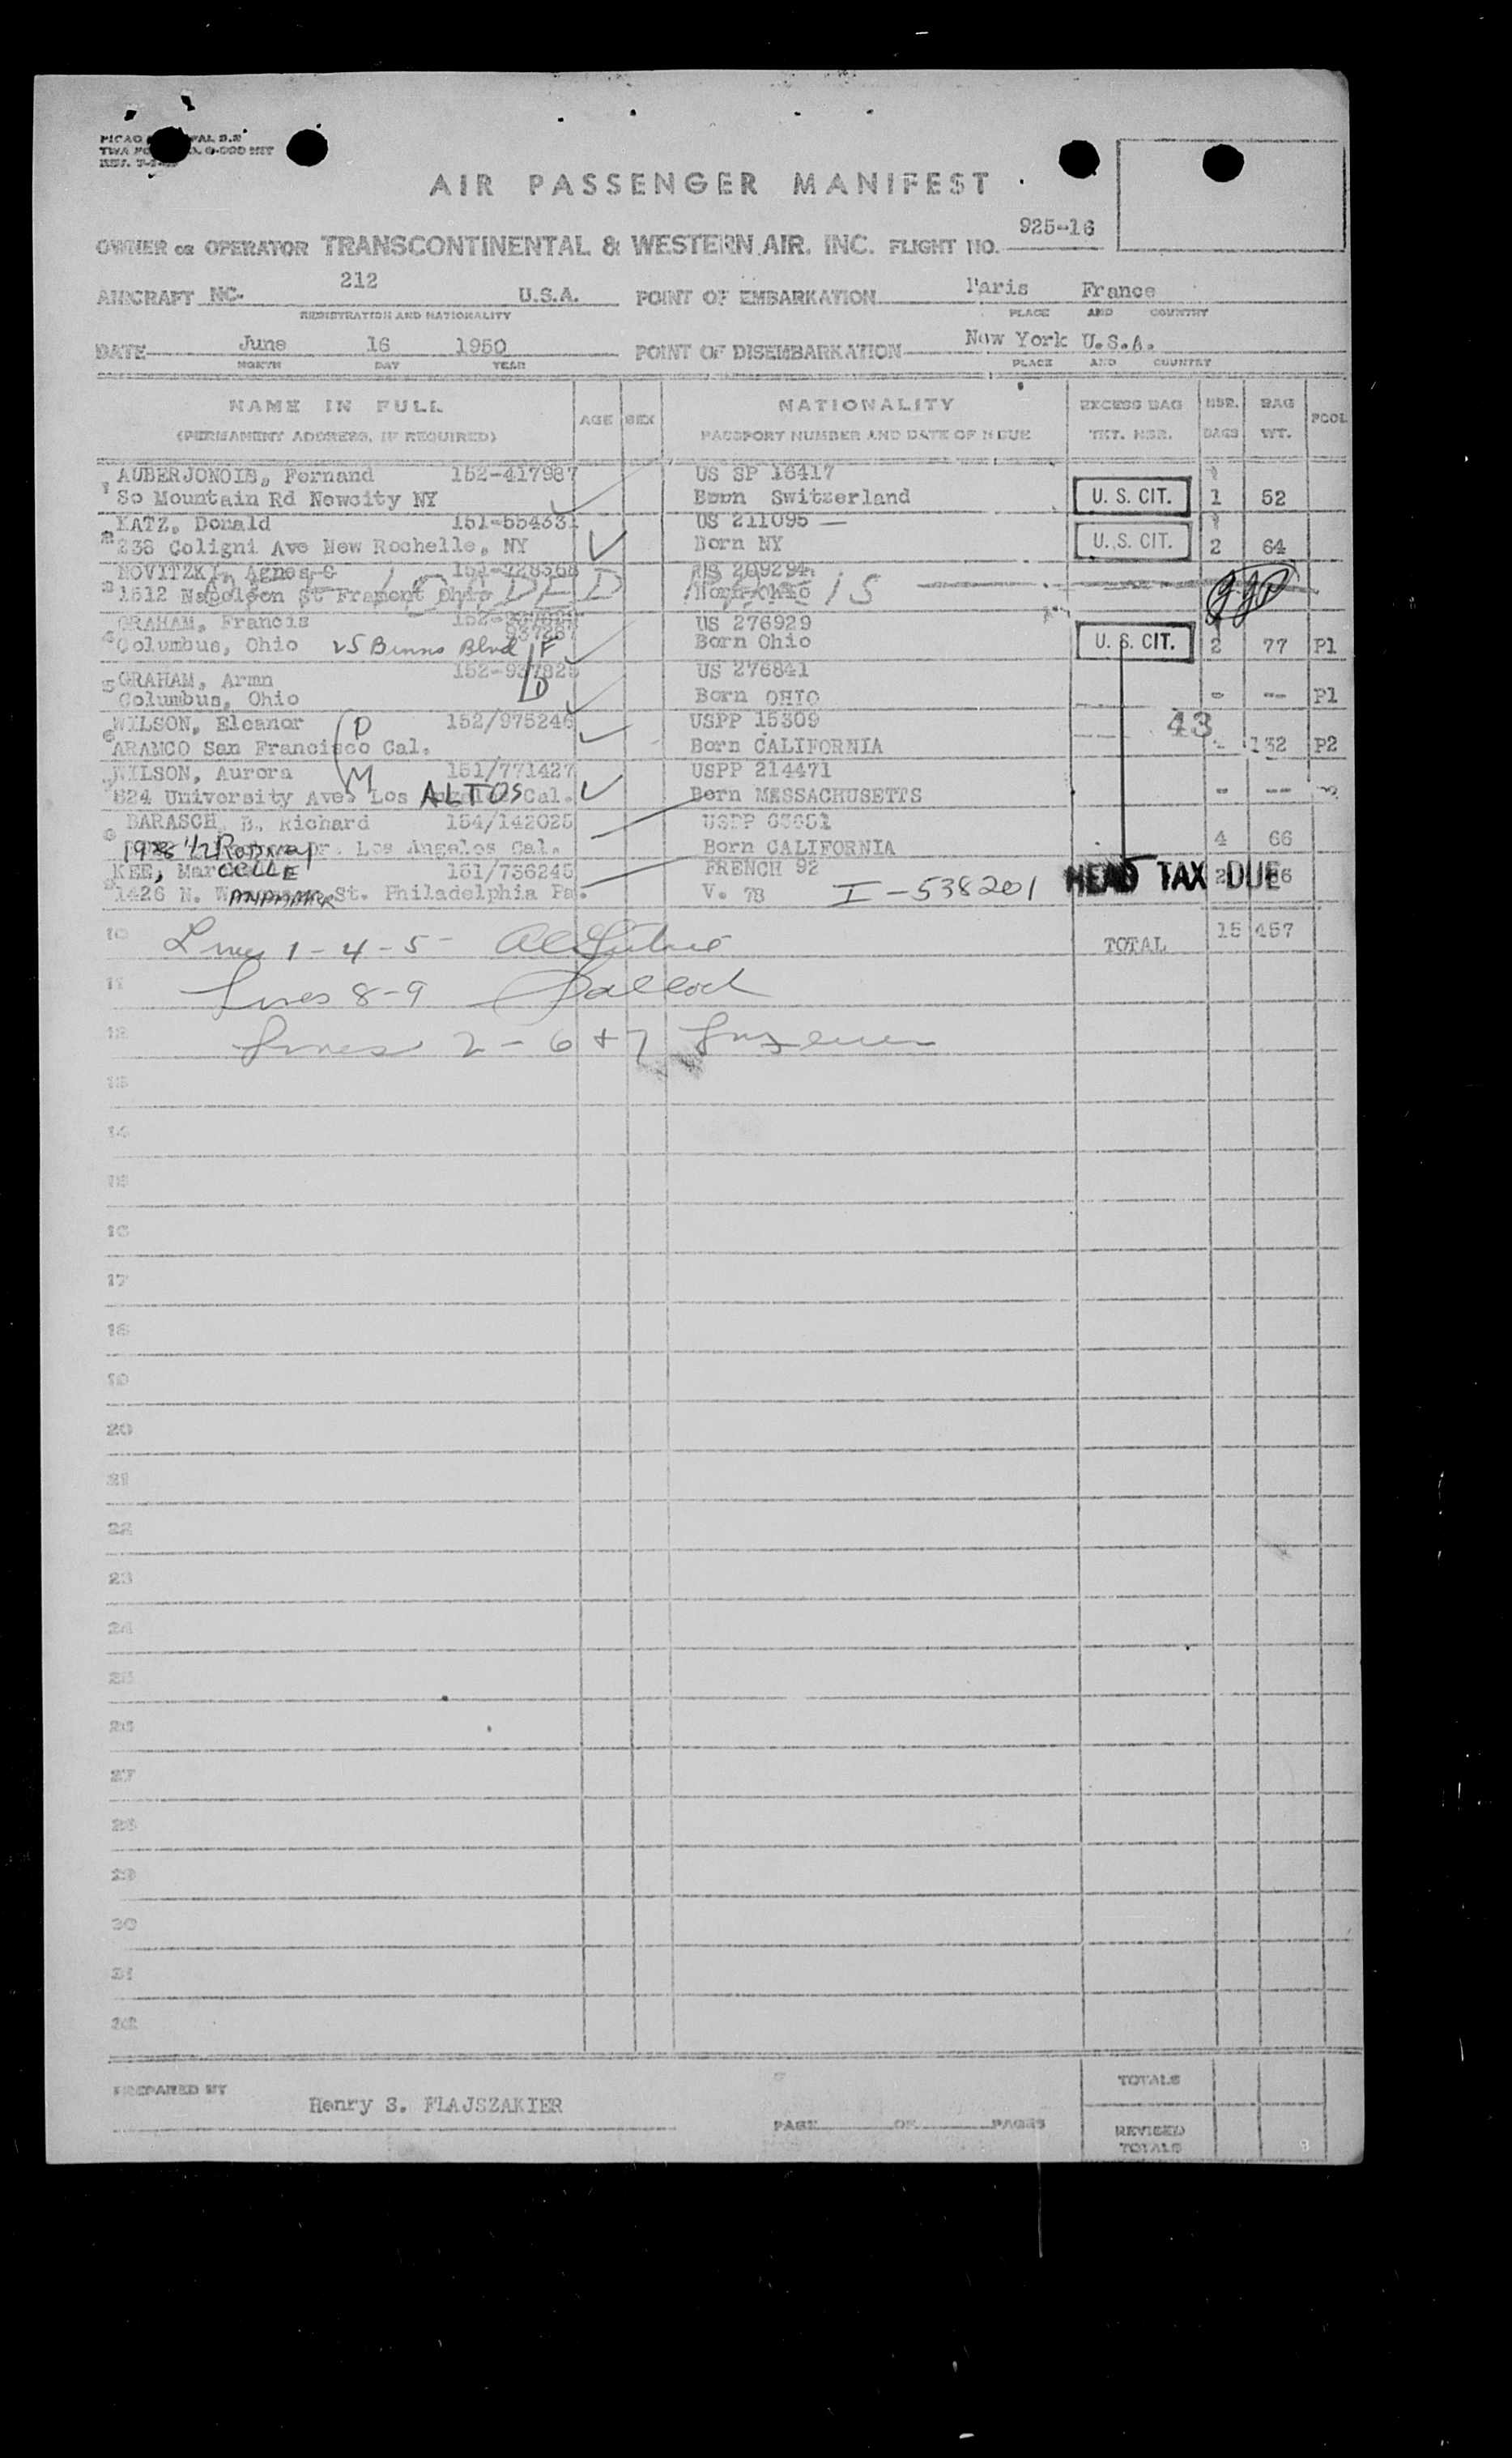 AIR PASSENGER MANIFEST
OWNER OR OPERATOR TRANSCONTINENTAL & WESTERN AIR, INC. FLIGHT NO. 925-16
AIRCRAFT NC. 212 U.S.A. POINT OF EMBARKATION Paris France
REGISTRATION AND NATIONALITY PLACE AND COUNTRY
DATE June 16 1950 POINT OF DISEMBARKATION New York U.S.A.
MONTH DAY YEAR PLACE AND COUNTRY
NAME IN FULL AGE SEX NATIONALITY EXCESS BAG NBR. BAG POOL
(PERMANENT ADDRESS, IF REQUIRED) PASSPORT NUMBER AND DATE OF ISSUE TKT. NBR. BAGS WT.
1 AUBERJONOIS, Fernand 152-417987 US SP 16417
So Mountain Rd Newcity NY Born Switzerland U. S. CIT. 1 52
2 KATZ, Donald 151-554631 US 211095
238 Coligni Ave New Rochelle, NY Born NY U. S. CIT. 2 64
3 NOVITZKI, Agnes C
1512 Napoleon St Fremont Ohio Born Ohio
4 GRAHAM, Francis 937827 US 276929
Columbus, Ohio 25 Binns Blvd F Born Ohio U. S. CIT. 2 77 P1
5 GRAHAM, Armn 152-937828 US 276841
Columbus, Ohio D Born OHIO - -- P1
6 WILSON, Eleanor D 152/975246 USPP 15309 43
ARAMCO San Francisco Cal. Born CALIFORNIA 132 P2
7 WILSON, Aurora M 151/771427 USPP 214471
824 University Ave. Los ALTOS Cal. Born MESSACHUSETTS - --
8 BARASCH, B. Richard 154/142025
1928 1/2 Rodney Dr. Los Angeles Cal. Born CALIFORNIA 4 66
KEE, MarCELLE 151/736245 FRENCH 92 HEAD TAX DUE
1426 N. St. Philadelphia Pa. V. 78 I-538201
10 Lines 1-4-5- TOTAL 15 457
11 Lines 8-9
12 Lines 2-6+7
13
14
15
16
17
18
19
20
21
22
23
24
25
26
27
28
29
30
31
32
PREPARED BY Henry S. FLAJSZAKIER PAGE OF PAGES TOTALS
REVISED
TOTALS